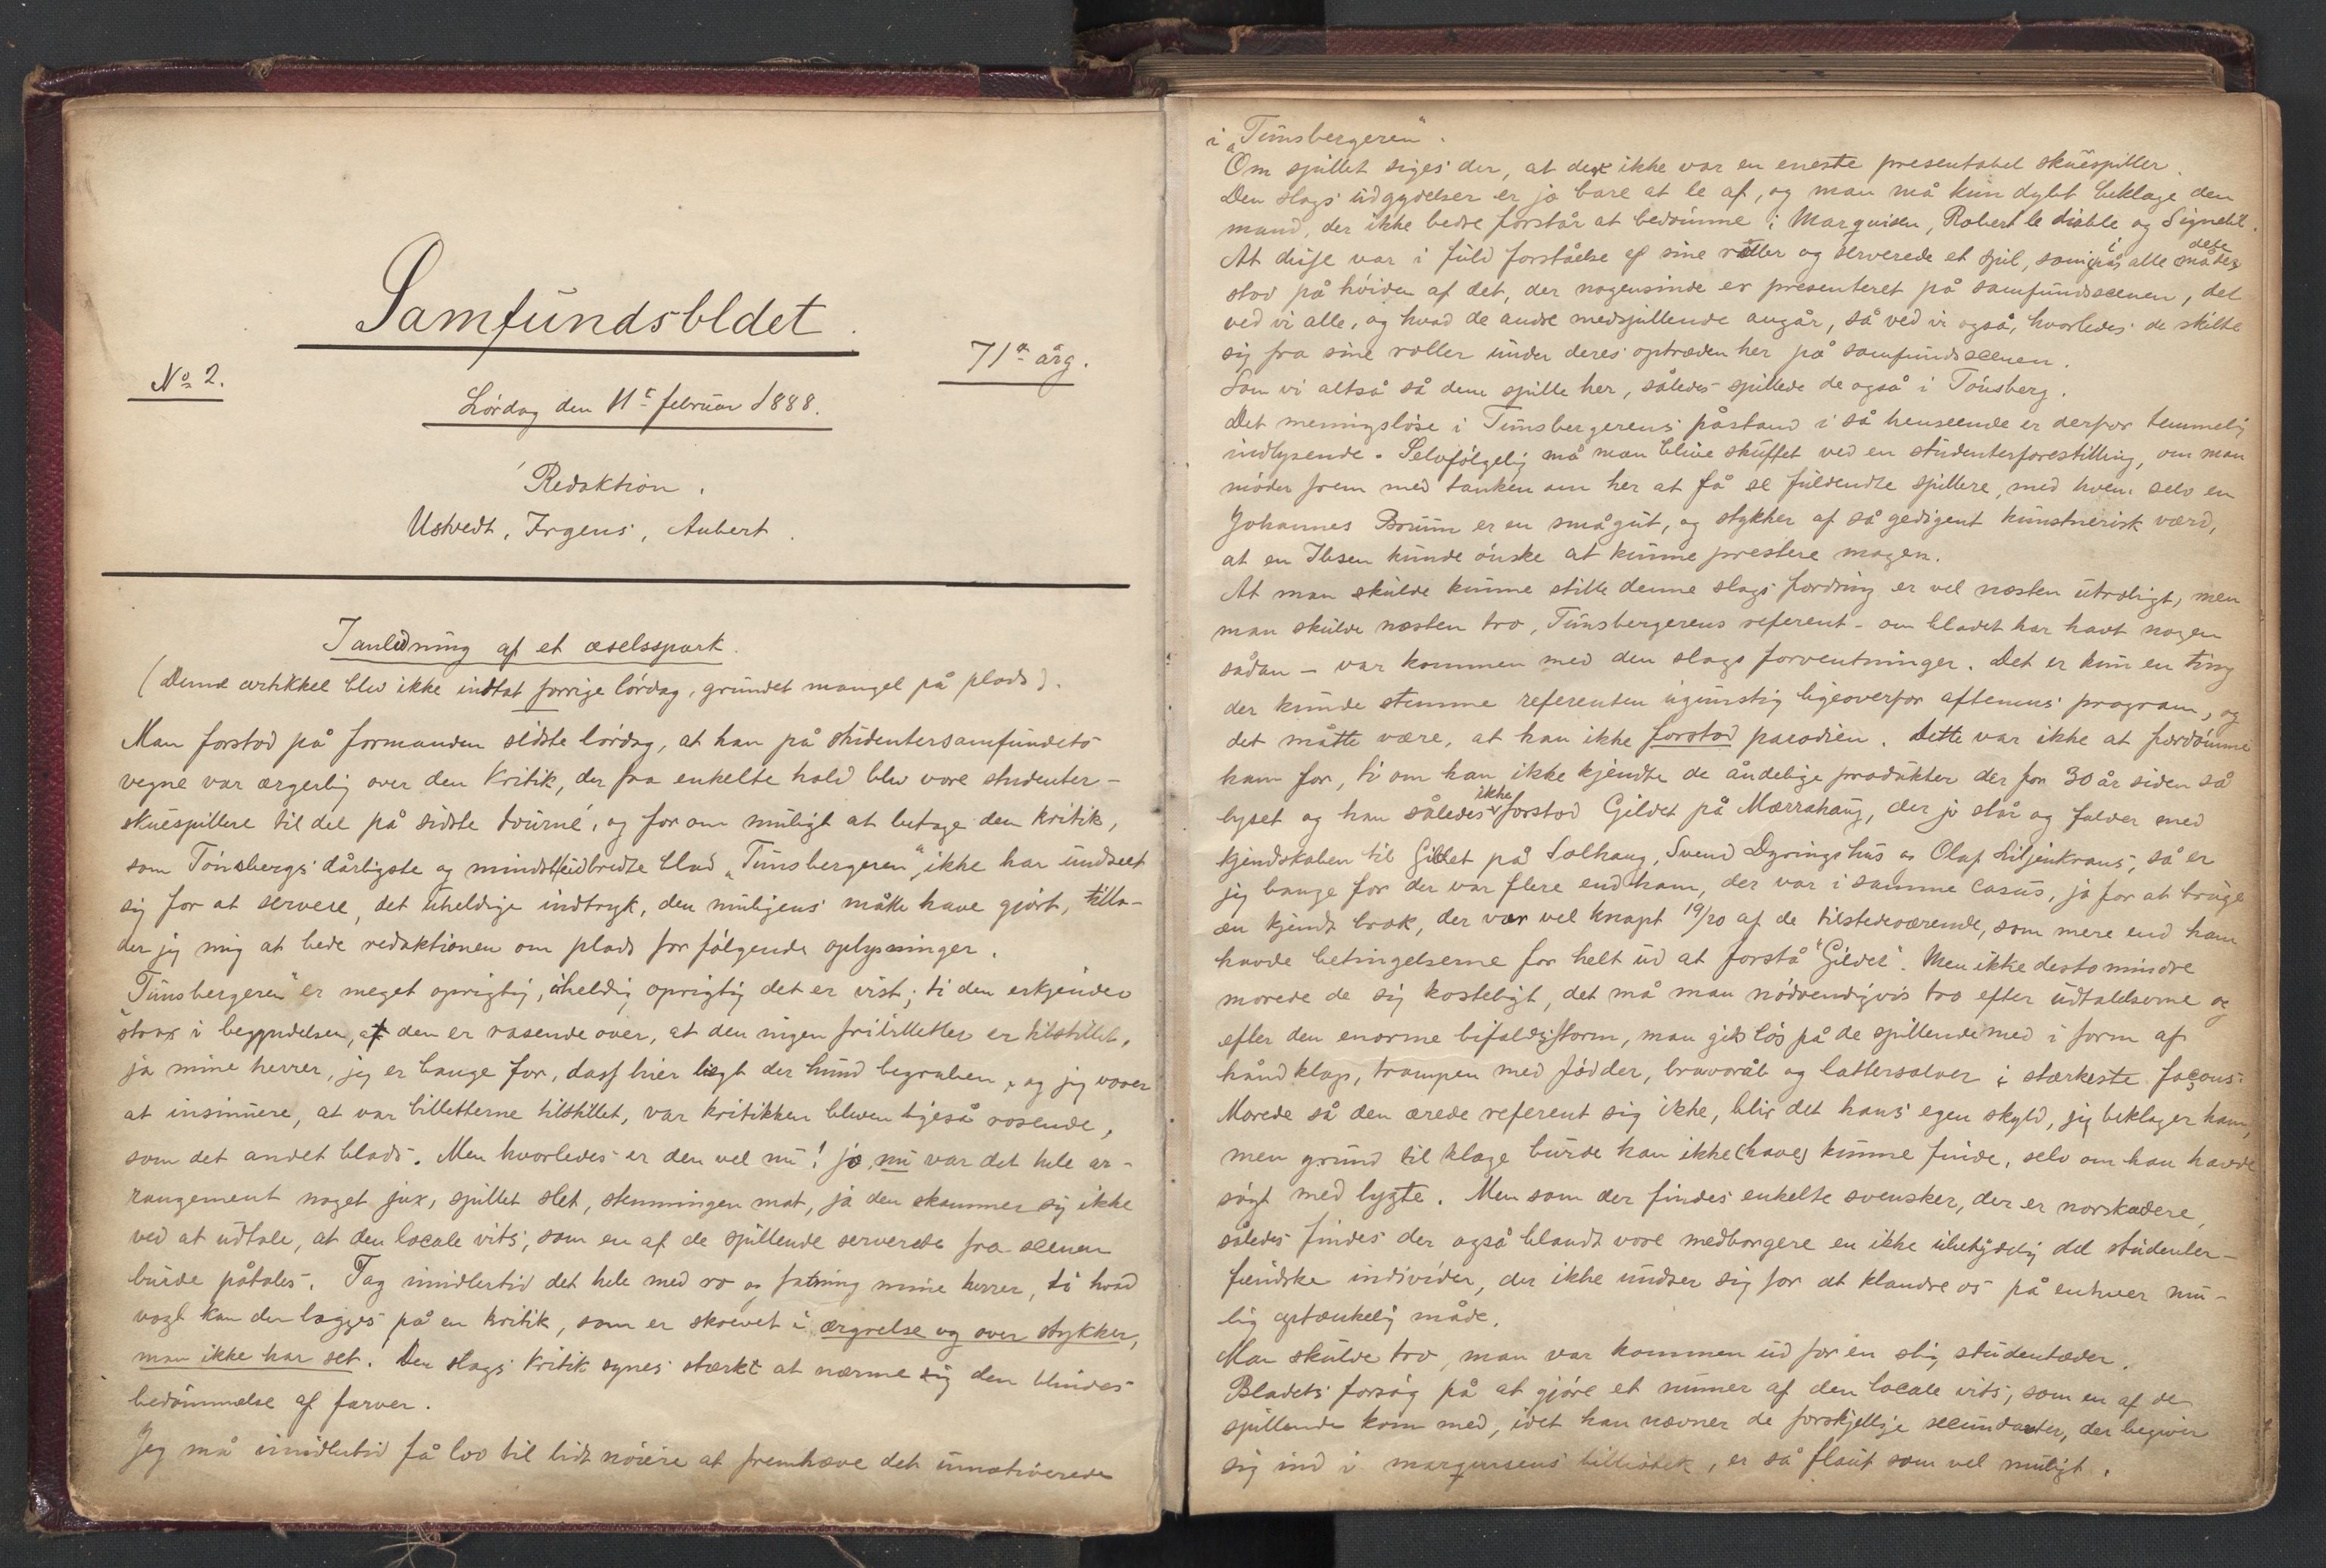 Samfundsbldet.
No 2.
71de årg.
Lørdag den 11te februar 1888.
Redaktion.
Ustvedt, Irgens, Aubert.
I anledning af et æselsspark.
(Denne artikkel blev ikke indtat forrige lørdag, grundet mangel på plads).
Man forstod på formanden sidste lørdag, at han på studentersamfundets
vegne var ærgerlig over den kritik, der fra enkelte hold blev vore studenter-
skuespillere til del på sidste tourné, og for om muligt at betage den kritik,
som Tønsbergs dårligste og mindst udbredte blad „Tunsbergeren", ikke har undseet
sig for at servere, det uheldige indtryk, den muligens måtte have gjort, tilla-
der jeg mig at bede redaktionen om plads for følgende oplysninger.
„Tunsbergeren" er meget oprigtig, uheldig oprigtig det er vist; ti den erkjender
strax i begyndelsen, at den er rasende over, at den ingen fribilletter er tilstillet,
ja mine herrer, jeg er bange for, dass hier liegt der hund begraben, og jeg vover
at insinuere, at var billetterne tilstillet, var kritikken bleven ligeså rosende,
som det andet blads. Men hvorledes er den vel nu! jo, nu var det hele ar-
rangement noget jux, spillet slet, stemningen mat, ja den skammer sig ikke
ved at udtale, at den locale vits, som en af de spillende serverede fra scenen
burde påtales. Tag imidlertid det hele med ro og fatning mine herrer, ti hvad
vægt kan der lægges på en kritik, som er skrevet i ærgrelse og over stykker,
man ikke har set. Den slags kritik synes stærkt at nærme sig den blindes
bedømmelse af farver.
Jeg må imidlertid få lov til lidt nøiere at fremhæve det umotiverede
i „Tunsbergeren".
Om spillet siges der, at der ikke var en eneste presentabel skuespiller.
Den slags udgydelser er jo bare at le af, og man må kun dybt beklage den
mand, der ikke bedre forstår at bedømme i Marquisen, Robert le diable og Signelil.
At disse var i fuld forståelse af sine roller og serverede et spil, som i alle dele
stod på høiden af det, der nogensinde er presenteret på samfundsscenen, det
ved vi alle, og hvad de andre medspillende angår, så ved vi også, hvorledes de skilte
sig fra sine roller under deres optræden her på samfundsscenen.
Som vi altså så dem spille her, således spillede de også i Tønsberg.
Det meningsløse i Tunsbergerens påstand i så henseende er derfor temmelig
indlysende. Selvfølgelig må man blive skuffet ved en studenterforestilling, om man
møder frem med tanken om her at få se fuldendte spillere, med hvem selv en
Johannes Bruun er en smågut, og stykker af så gedigent kunstnerisk værd,
at en Ibsen kunde ønske at kunne prestere magen.
At man skulde kunne stille denne slags fordring er vel næsten utroligt, men
man skulde næsten tro, Tunsbergerens referent – om bladet har havt nogen
sådan – var kommen med den slags forventninger. Det er kun en ting
der kunde stemme referenten ugunstig ligeoverfor aftenens program, og
det måtte være, at han ikke forstod parodien. Dette var ikke at fordømme
ham for, ti om han ikke kjendte de åndelige produkter der for 30 år siden så
lyset og han således ikke forstod Gildet på Mærrahaug, der jo står og falder med
kjendskaben til Gildet på Solhaug, Svend Dyrings hus og Olaf Liljenkrans, så er
jeg bange for der var flere end ham, der var i samme casus, ja for at bruge
en kjendt brøk, der var vel knapt 19/20 af de tilstedeværende, som mere end ham
havde betingelserne for helt ud at forstå "Gildet". Men ikke desto mindre
morede de sig kosteligt, det må man nødvendigvis tro efter udtalelserne og
efter den enorme bifaldsstorm, man gik løs på de spillende med i form af
håndklap, trampen med fødder, bravoråb og lattersalver i stærkeste façons.
Morede så den ærede referent sig ikke, blir det hans egen skyld, jeg beklager ham,
men grund til klage burde han ikke (have) kunne finde, selv om han havde
søgt med lygte. Men som der findes enkelte svensker, der er norskædere,
således findes der også blandt vore medborgere en ikke ubetydelig del studenter-
fiendske individer, der ikke undser sig for at klandre os på enhver mu-
lig optænkelig måde.
Man skulde tro, man var kommen ud for en slig studentæder.
Bladets forsøg på at gjøre et numer af den locale vits, som en af de
spillende kom med, idet han nævner de forskjellige secundanter, der begiver
sig ind i marquisens bibliotek, er så flaut som vel muligt.